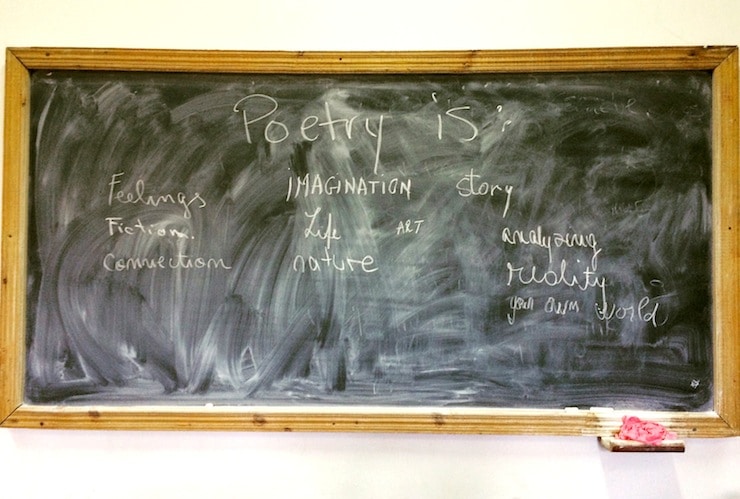 Poetry is:
Feelings IMAGINATION story
Fiction. Life ART analyzing
Connection nature reality
your own world